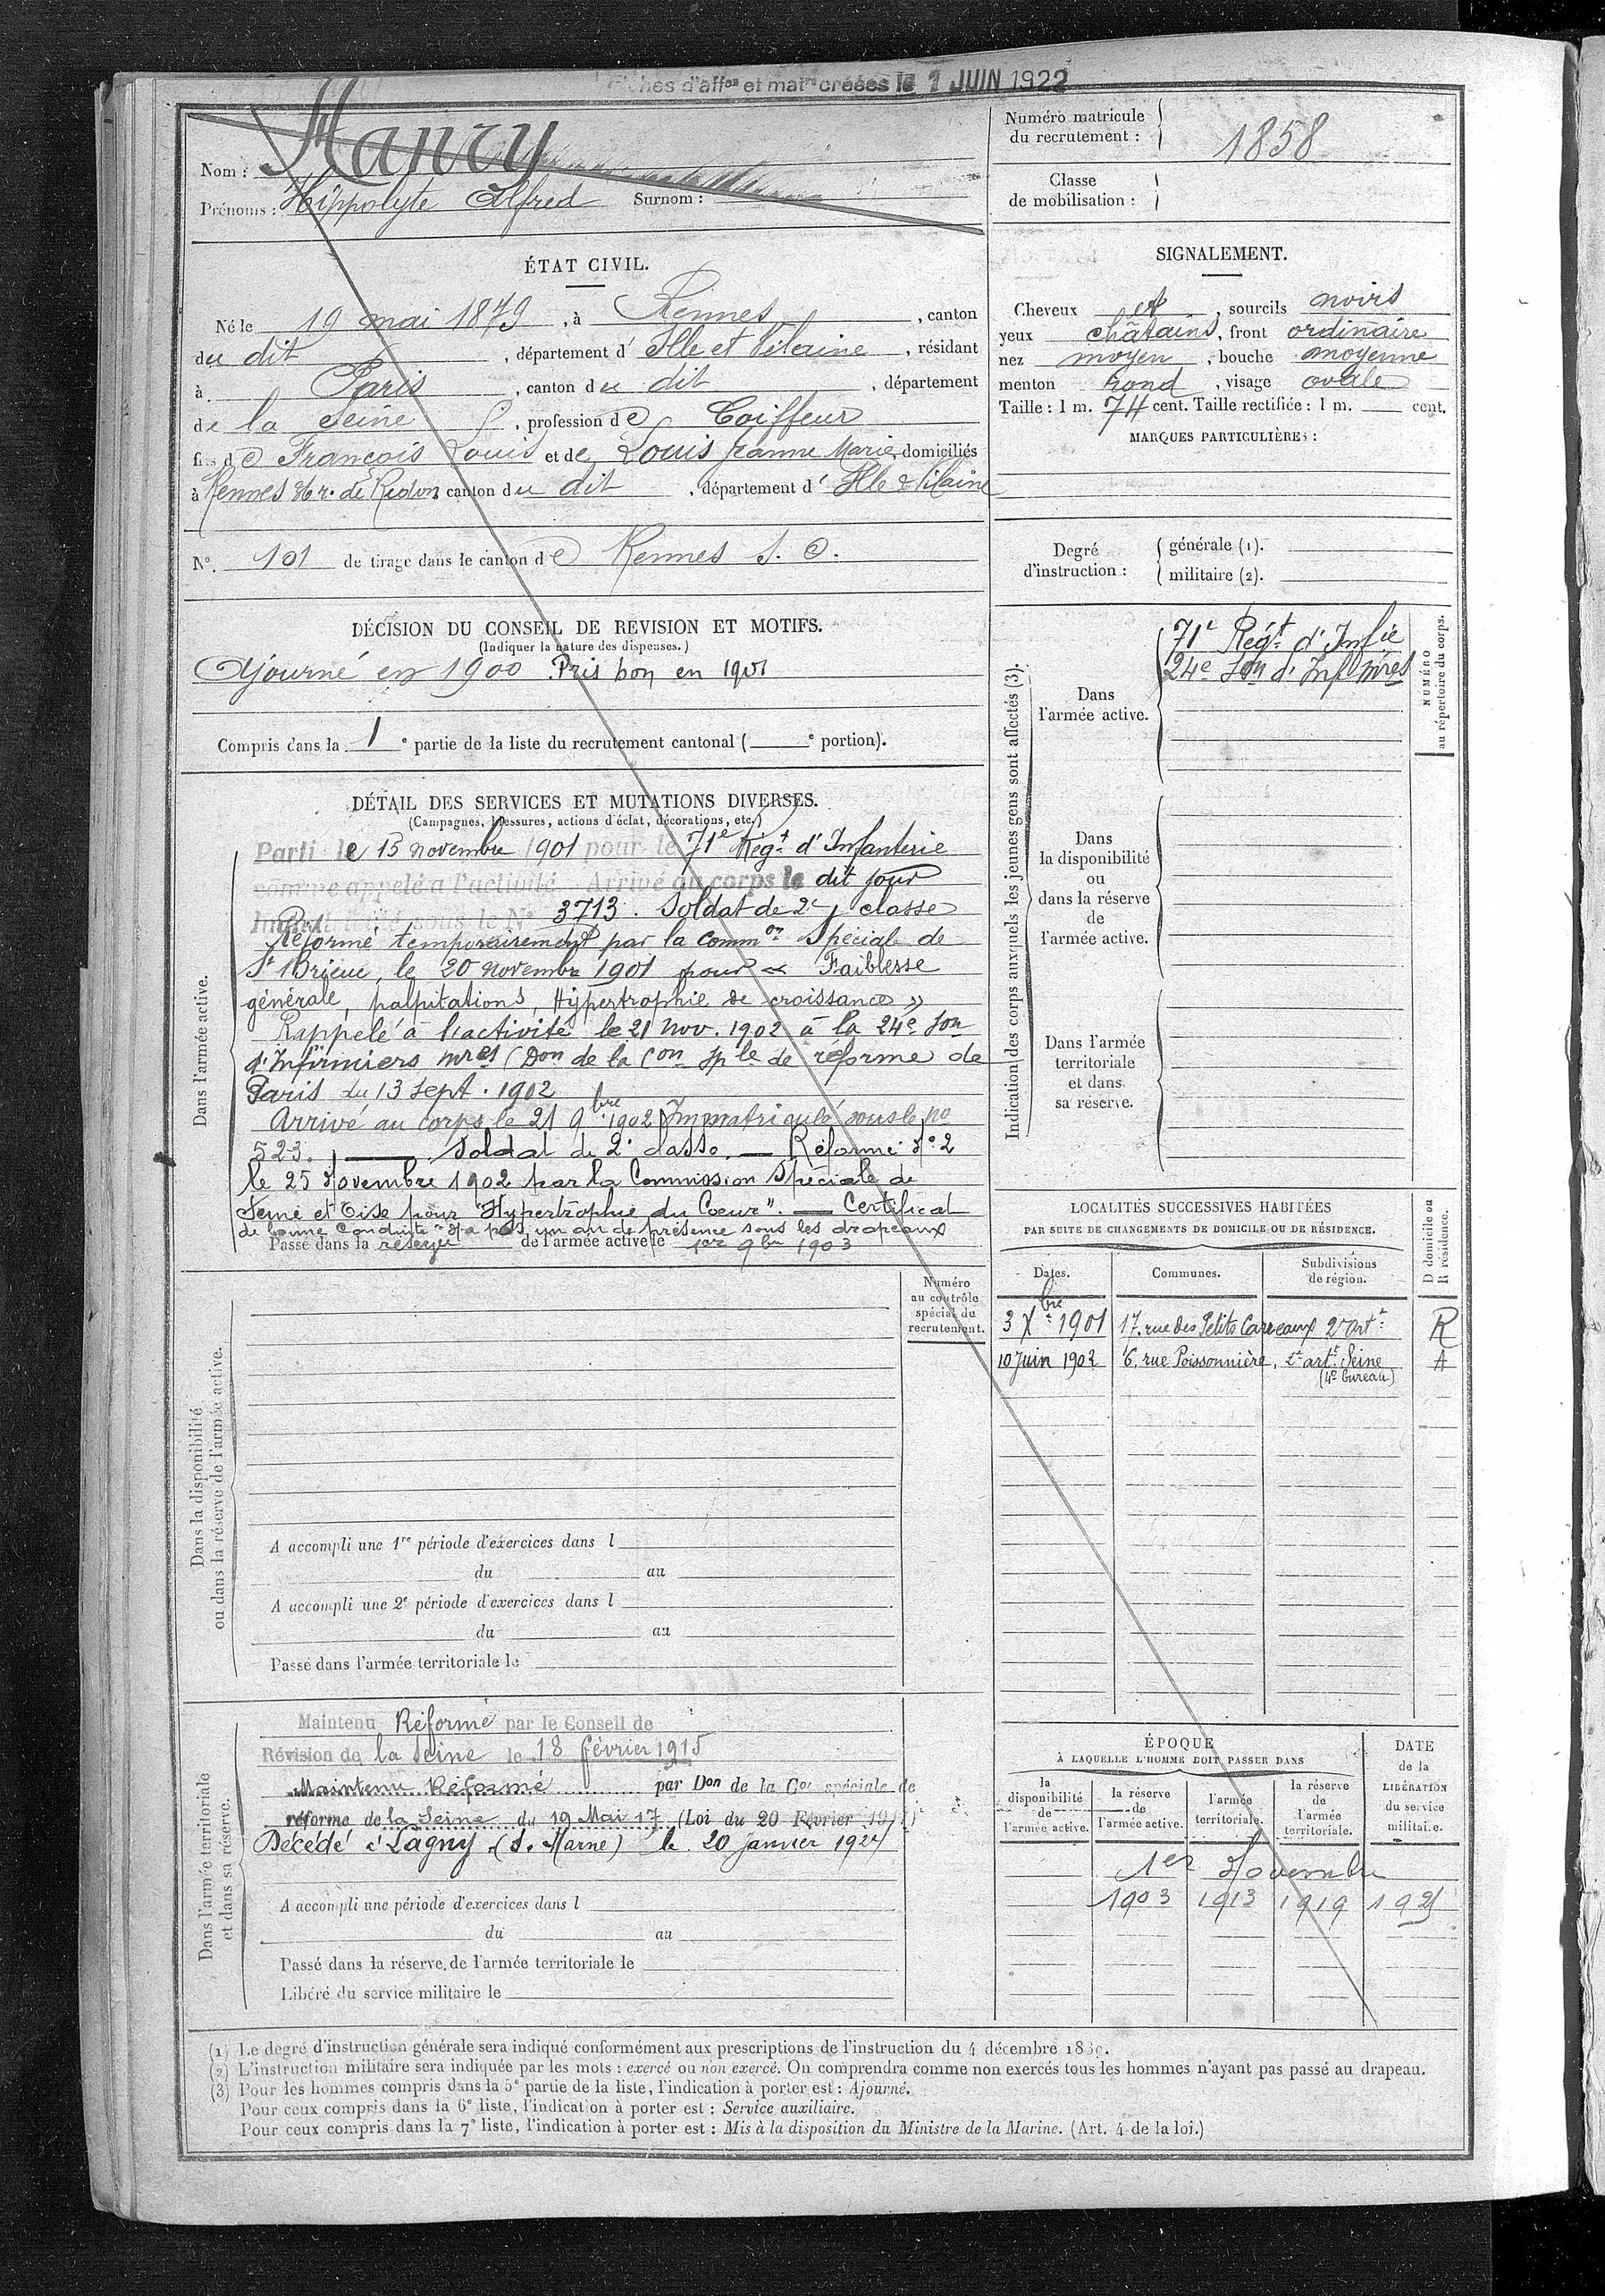 Fiches d'affon et matre créées le 1 JUIN 1922
Nom : Hanry
Prénoms : Hippolyte Alfred Surnom :
Numéro matricule du recrutement : 1858
Classe de mobilisation :
ÉTAT CIVIL.
Né le 19 mai 1879, à Rennes, canton
du dit, département d' Ille et Vilaine, résidant
à Paris, canton du dit, département
de la Seine, profession de Coiffeur
fils de François Louis et de Louis Jeanne Marie, domiciliés
à Rennes r. de Redon canton du dit, département d' Ille & Vilaine
N°. 101 de tirage dans le canton de Rennes S. O.
SIGNALEMENT.
Cheveux et, sourcils noirs
yeux châtains, front ordinaire
nez moyen, bouche moyenne
menton rond, visage ovale
Taille : 1 m. 74 cent. Taille rectifiée : 1 m. cent.
MARQUES PARTICULIÈRES :
Degré d'instruction :
générale (1).
militaire (2).
DÉCISION DU CONSEIL DE REVISION ET MOTIFS.
(Indiquer la nature des dispenses.)
Ajourné en 1900 Pris bon en 1901
Compris dans la 1e partie de la liste du recrutement cantonal ( e portion).
Indication des corps auxquels les jeunes gens sont affectés (3).
NUMÉRO au répertoire du corps.
Dans l'armée active.
71e Régt d'Infie
24e Son d'Inf. Mres
Dans la disponibilité ou dans la réserve de l'armée active.
Dans l'armée territoriale et dans sa réserve.
DÉTAIL DES SERVICES ET MUTATIONS DIVERSES.
(Campagnes, blessures, actions d'éclat, décorations, etc.)
Dans l'armée active.
Parti le 15 novembre 1901 pour le 71e Régt d'Infanterie
comme appelé à l'activité. Arrivé au corps le dit jour
Immatriculé sous le N° 3713. Soldat de 2e classe
Réformé temporairement par la Common Spéciale de
St Brieuc, le 20 novembre 1901 pour « Faiblesse
générale, palpitations, Hypertrophie de croissance »
Rappelé à l'activité le 21 nov. 1902 à la 24e Son
d'Infirmiers mres (Don de la Con sple de réforme de
Paris du 13 sept. 1902
Arrivé au corps le 21 9bre 1902 Immatriculé sous le no
523. Soldat de 2e classe. — Réformé No 2
le 25 Novembre 1902 par la Commission Spéciale de
Seine et Oise pour "Hypertrophie du Coeur". — Certificat
de bonne conduite "N'a pas un an de présence sous les drapeaux
Passé dans la réserve de l'armée active le 1er 9bre 1903
Numéro au contrôle spécial du recrutement.
LOCALITÉS SUCCESSIVES HABITÉES
PAR SUITE DE CHANGEMENTS DE DOMICILE OU DE RÉSIDENCE.
Dates. Communes. Subdivisions de région. D domicile ou R résidence.
3 Xbre 1901 17, rue des Petits Carreaux 2e Artt R
10 Juin 1902 6, rue Poissonnière, 2e artt Seine (4e bureau) A
Dans la disponibilité ou dans la réserve de l'armée active.
A accompli une 1re période d'exercices dans l
du au
A accompli une 2e période d'exercices dans l
du au
Passé dans l'armée territoriale le
Dans l'armée territoriale et dans sa réserve.
Maintenu Réformé par le Conseil de
Révision de la Seine le 18 février 1915
Maintenu Réformé par Don de la Con spéciale de
réforme de la Seine du 19 Mai 17 (Loi du 20 Février 1917)
Décédé à Lagny (S. Marne) le 20 janvier 1924
A accompli une période d'exercices dans l
du au
Passé dans la réserve de l'armée territoriale le
Libéré du service militaire le
ÉPOQUE
À LAQUELLE L'HOMME DOIT PASSER DANS
la disponibilité de l'armée active. la réserve de l'armée active. l'armée territoriale. la réserve de l'armée territoriale.
DATE de la LIBÉRATION du service militaire.
1er Novembre
1903 1913 1919 1925
(1) Le degré d'instruction générale sera indiqué conformément aux prescriptions de l'instruction du 4 décembre
(2) L'instruction militaire sera indiquée par les mots : exercé ou non exercé. On comprendra comme non exercés tous les hommes n'ayant pas passé au drapeau.
(3) Pour les hommes compris dans la 5e partie de la liste, l'indication à porter est : Ajourné.
Pour ceux compris dans la 6e liste, l'indication à porter est : Service auxiliaire.
Pour ceux compris dans la 7e liste, l'indication à porter est : Mis à la disposition du Ministre de la Marine. (Art. 4 de la loi.)